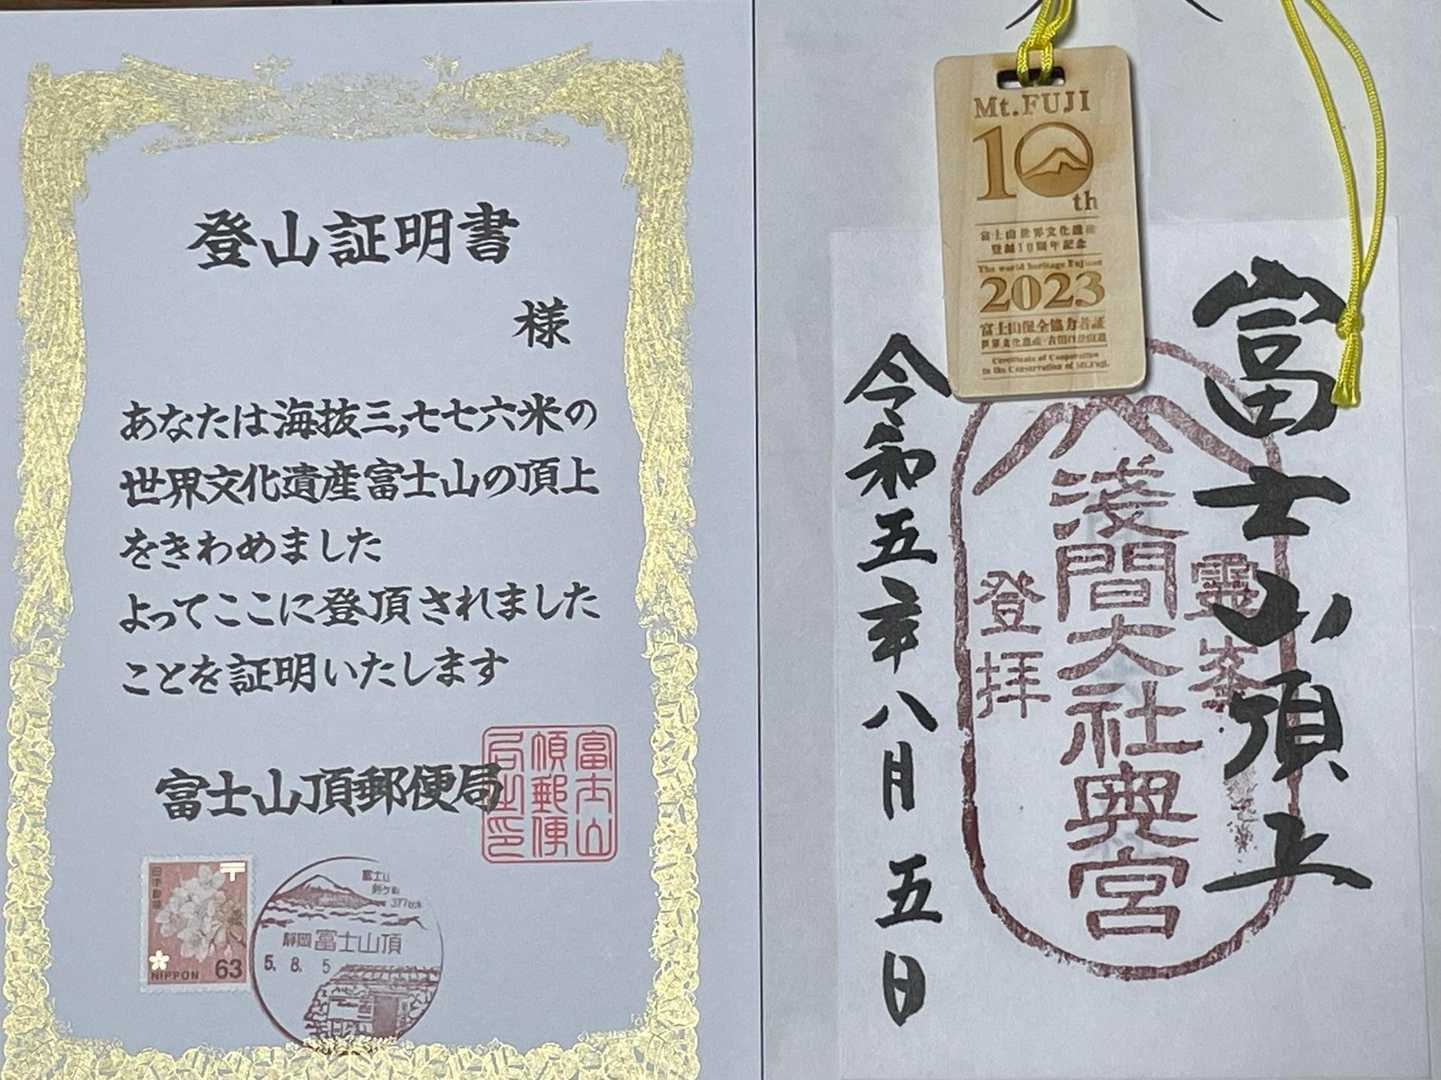 登山証明書
様
あなたは海抜三,七七六米の
世界文化遺産富士山の頂上
をきわめました
よってここに登頂されました
ことを証明いたします
富士山頂郵便局
富士山
頂郵便
局之印
日本郵便
〒
NIPPON 63
富士山
剣ヶ峰
3776m
静岡 富士山頂
5. 8. 5
Mt.FUJI
10th
富士山世界文化遺産
登録10周年記念
The world heritage Fujisan
2023
富士山保全協力者証
世界文化遺産・吉田口登山道
Certificate of Cooperation
in the Conservation of Mt.Fuji.
富士山頂上
霊峯
淺間大社奥宮
登拝
令和五年八月五日